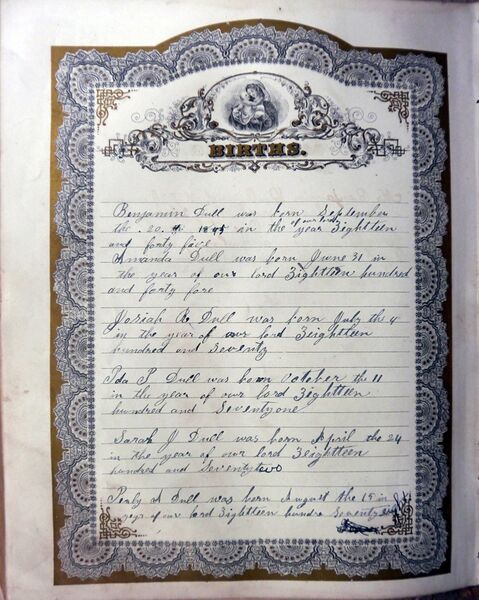 BIRTHS.
Benjamin Dull was born September
the 20 th 1845 in the year of our lord Eighteen
and forty five
Amanda Dull was born June 31 in
the year of our lord Eighteen hundred
and forty fore
Josiah R Dull was born July the 4
in the year of our lord Eighteen
hundred and Seventy
Ida P Dull was born October the 11
in the year of our lord Eighteen
hundred and Seventyone
Sarah J Dull was born April the 24
in the year of our lord Eighteen
hundred and Seventytwo
A Dull was born August the 15 in
of our lord Eighteen hundre